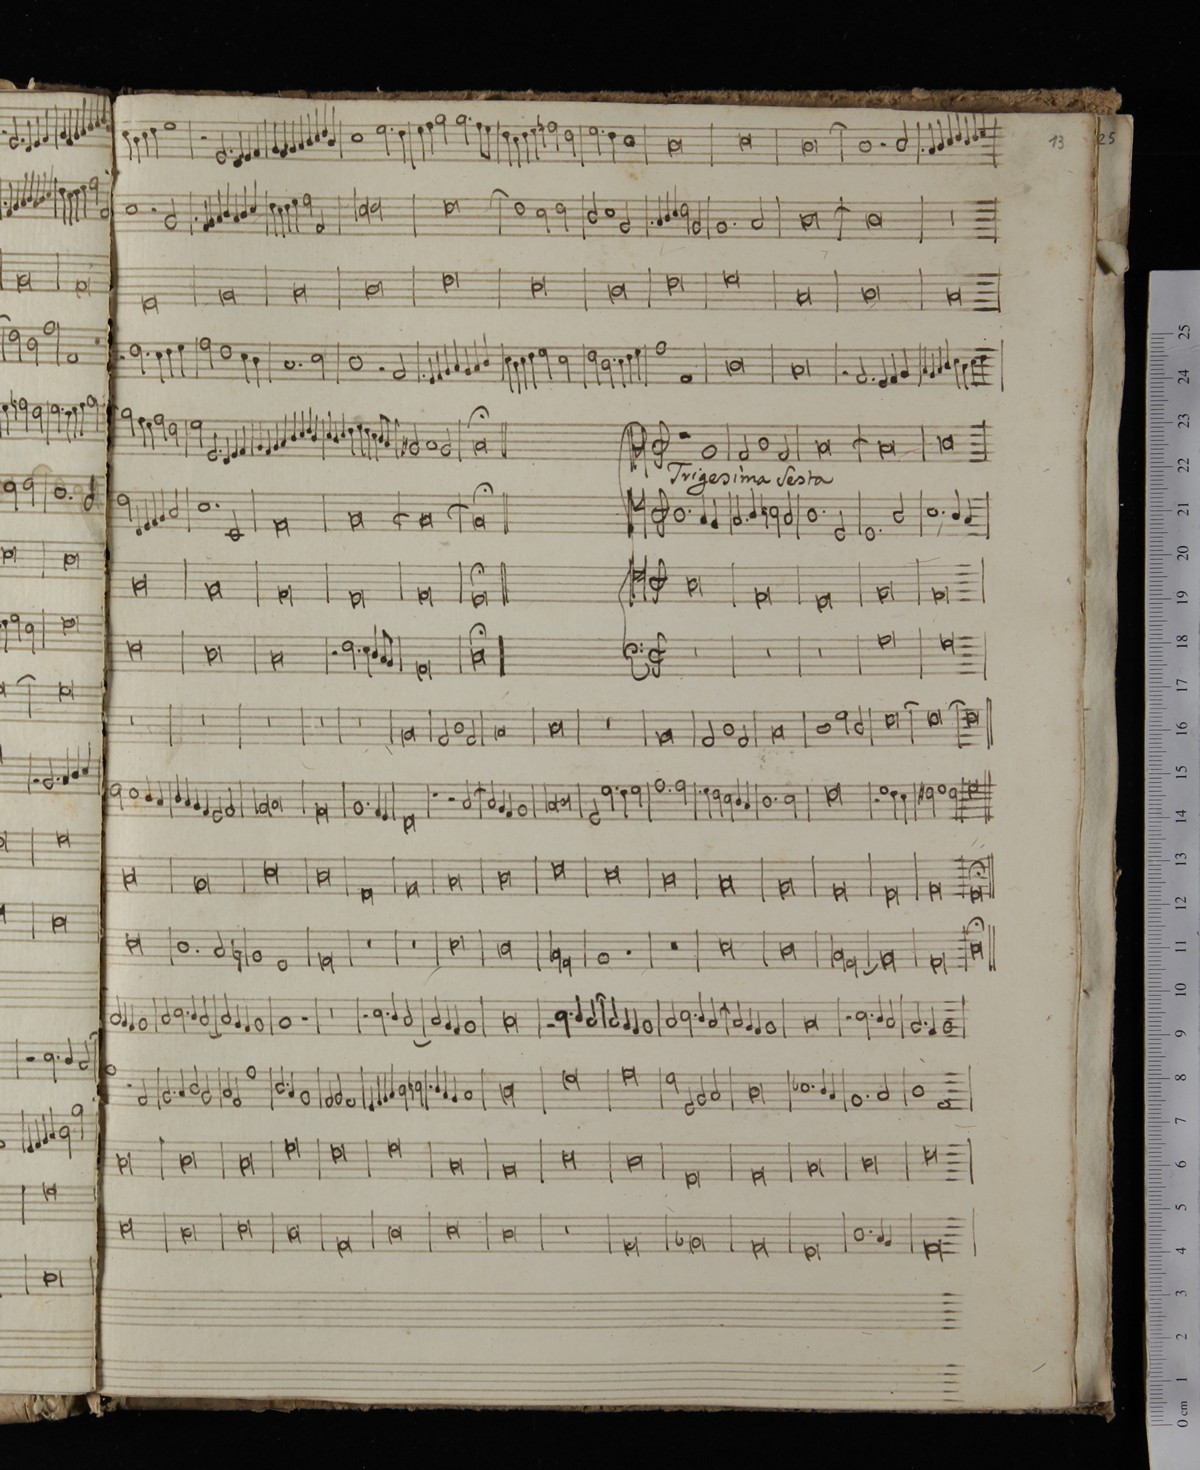 13
25
Trigesima Sesta
25
24
23
22
21
20
19
18
17
16
15
14
13
12
11
10
9
8
7
6
5
4
3
2
1
0 cm